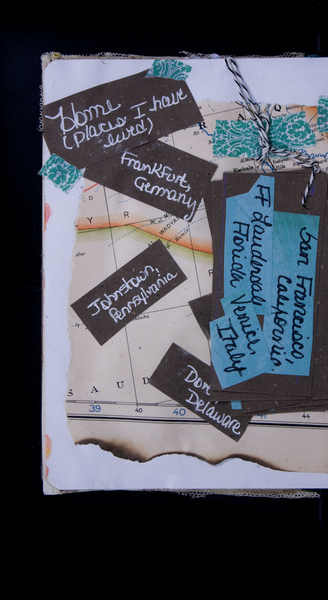 Home
(places I have
lived)
Frankfurt,
Germany
Ft Lauderdale
Florida
Venice
Italy
San Francisco,
California
Johnstown,
Pennsylvania
Delaware
R A Q
Y R
S A U D
39
40
40
41
44